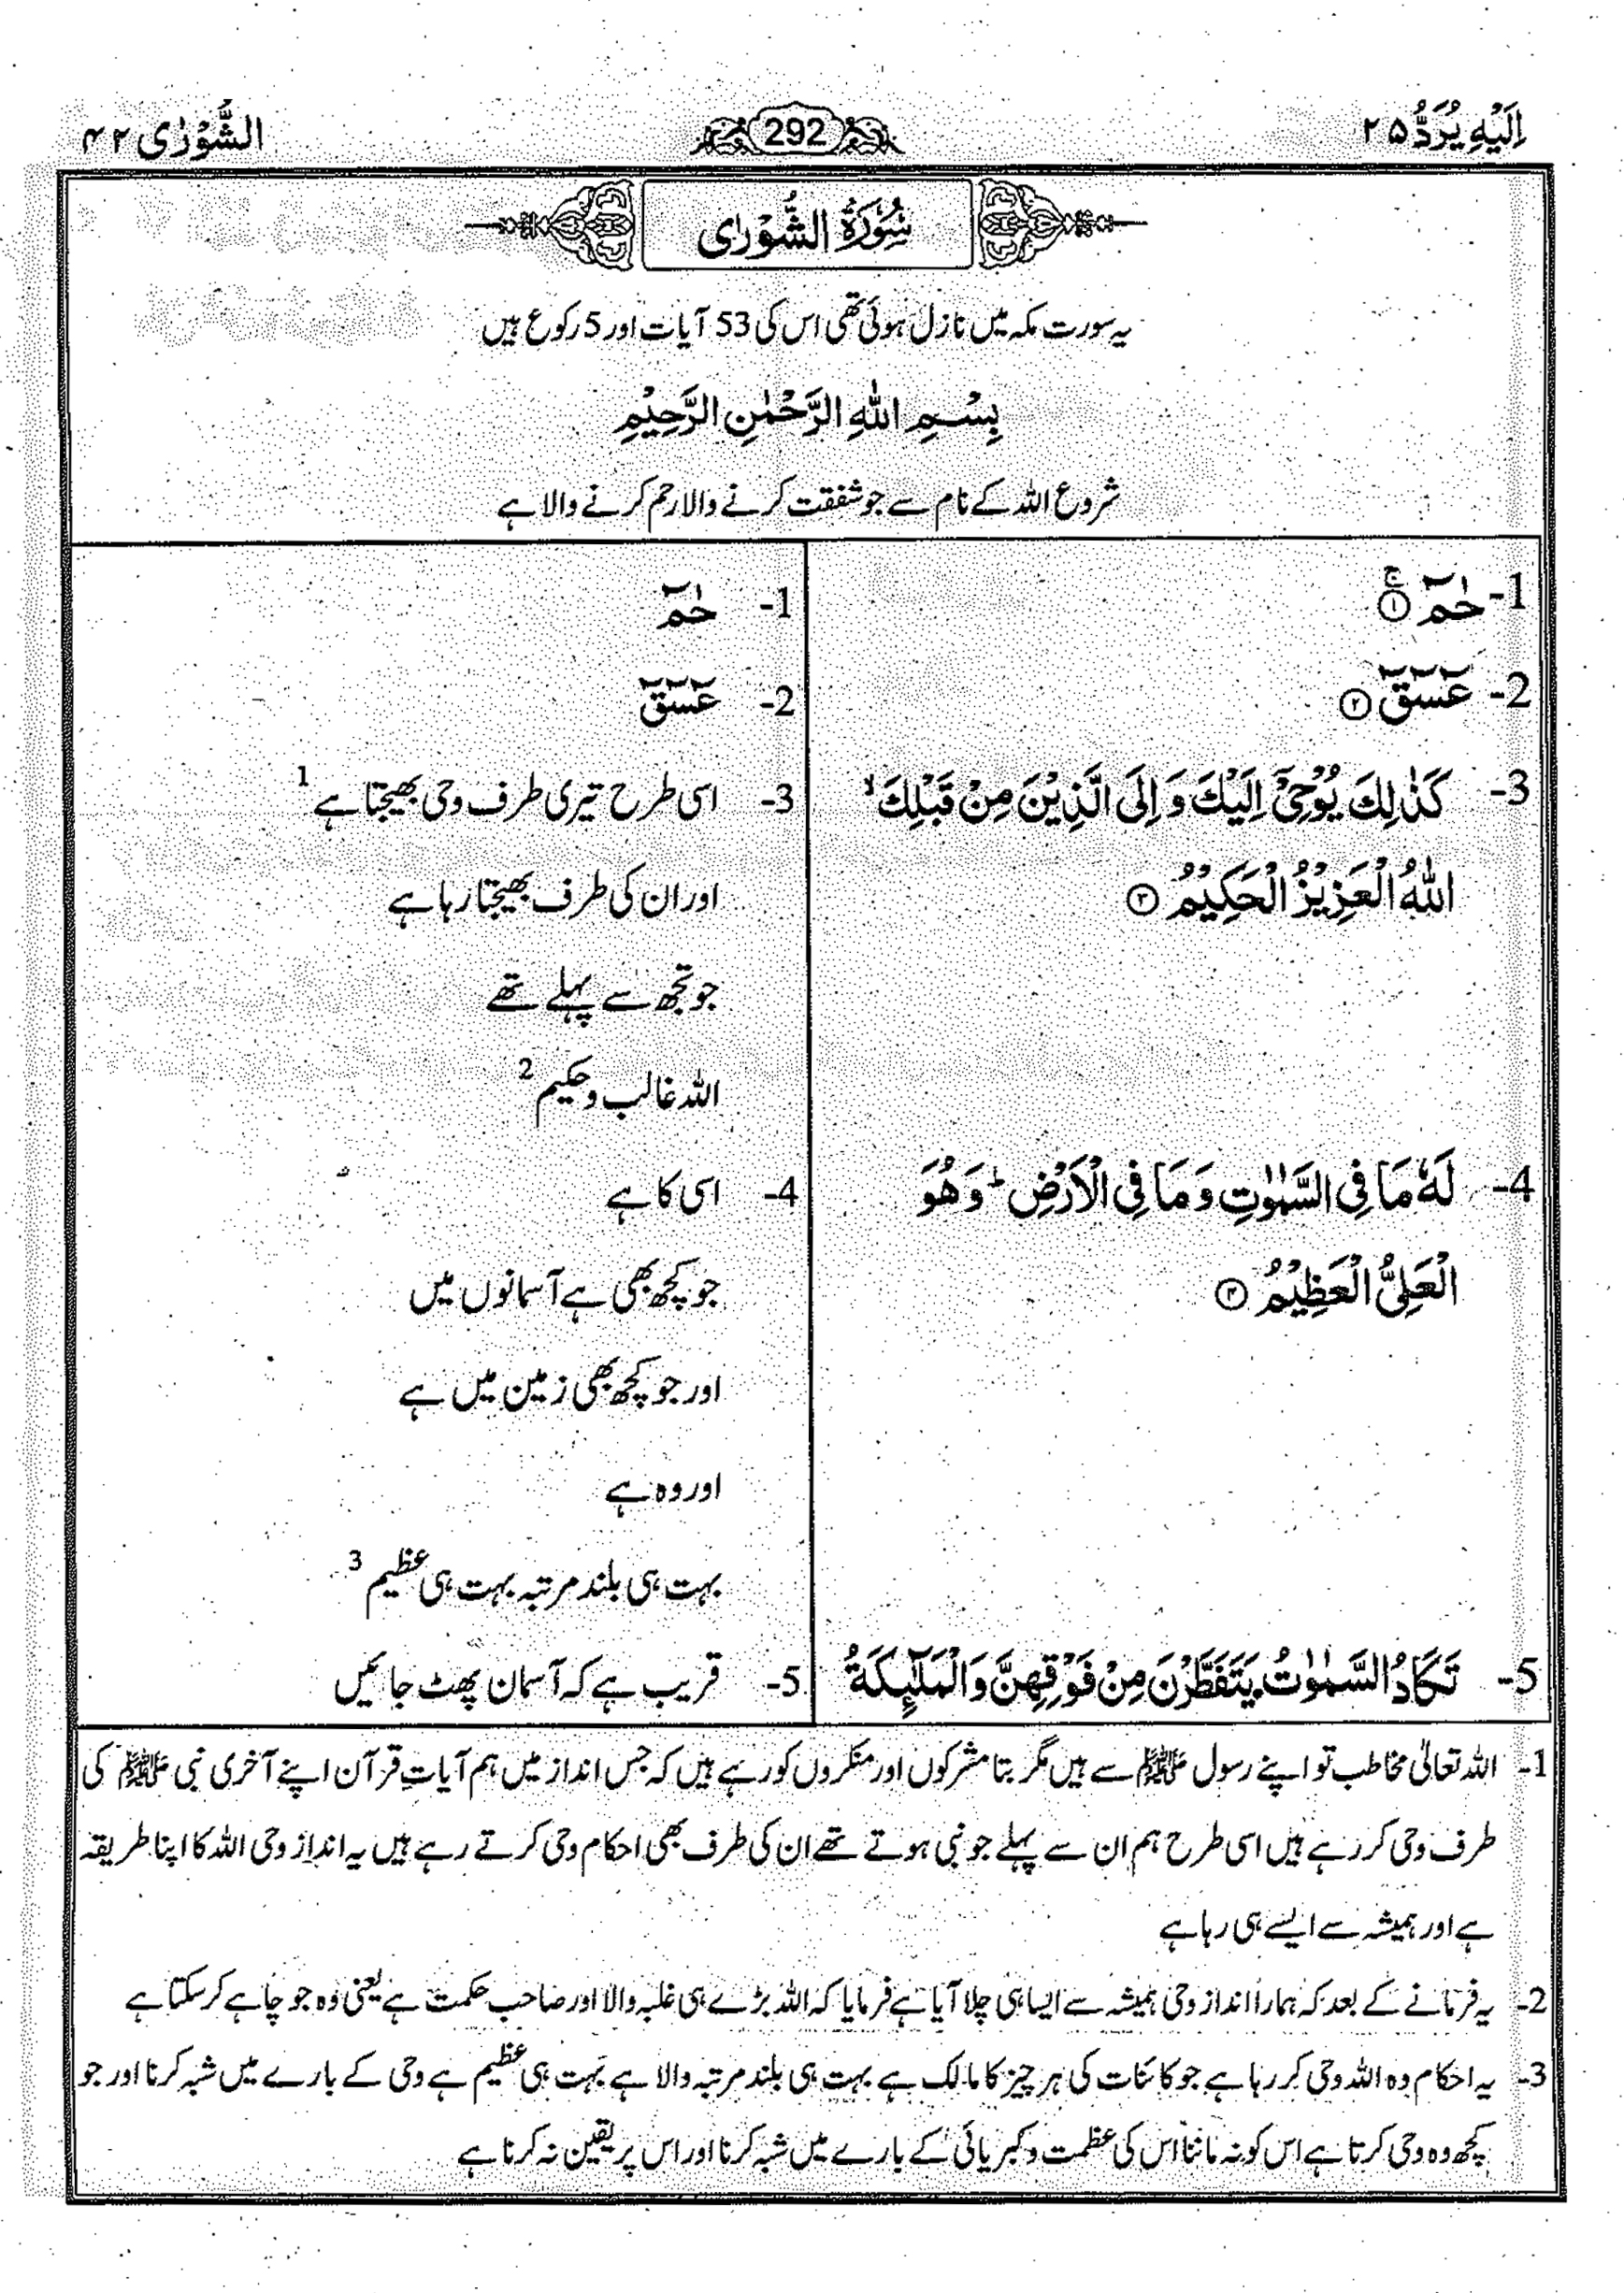 اِلَيْهِ يُرَدُّ ۲۵
292
الشُّوْرٰى ۴۲
سُوْرَةُ الشُّوْرٰى
یہ سورت مکہ میں نازل ہوئی تھی اس کی 53 آیات اور 5 رکوع ہیں
بِسْمِ اللّٰهِ الرَّحْمٰنِ الرَّحِيْمِ
شروع اللہ کے نام سے جو شفقت کرنے والا رحم کرنے والا ہے
1- حٰمٓ ۚ ①
2- عٓسٓقٓ ②
3- كَذٰلِكَ يُوْحِيْٓ اِلَيْكَ وَ اِلَى الَّذِيْنَ مِنْ قَبْلِكَ ۙ
اللّٰهُ الْعَزِيْزُ الْحَكِيْمُ ③
4- لَهٗ مَا فِي السَّمٰوٰتِ وَ مَا فِي الْاَرْضِ ؕ وَ هُوَ
الْعَلِيُّ الْعَظِيْمُ ④
5- تَكَادُ السَّمٰوٰتُ يَتَفَطَّرْنَ مِنْ فَوْقِهِنَّ وَ الْمَلٰٓئِكَةُ
1- حٰمٓ
2- عٓسٓقٓ
3- اسی طرح تیری طرف وحی بھیجتا ہے 1
اور ان کی طرف بھیجتا رہا ہے
جو تجھ سے پہلے تھے
اللہ غالب و حکیم 2
4- اسی کا ہے
جو کچھ بھی ہے آسمانوں میں
اور جو کچھ بھی زمین میں ہے
اور وہ ہے
بہت ہی بلند مرتبہ بہت ہی عظیم 3
5- قریب ہے کہ آسمان پھٹ جائیں
1- اللہ تعالیٰ مخاطب تو اپنے رسول ﷺ سے ہیں مگر بتا مشرکوں اور منکروں کو رہے ہیں کہ جس انداز میں ہم آیاتِ قرآن اپنے آخری نبی ﷺ کی
طرف وحی کر رہے ہیں اسی طرح ہم ان سے پہلے جو نبی ہوتے تھے ان کی طرف بھی احکام وحی کرتے رہے ہیں یہ اندازِ وحی اللہ کا اپنا طریقہ
ہے اور ہمیشہ سے ایسے ہی رہا ہے
2- یہ فرمانے کے بعد کہ ہمارا انداز وحی ہمیشہ سے ایسا ہی چلا آیا ہے فرمایا کہ اللہ بڑے ہی غلبہ والا اور صاحب حکمت ہے یعنی وہ جو چاہے کر سکتا ہے
3- یہ احکام وہ اللہ وحی کر رہا ہے جو کائنات کی ہر چیز کا مالک ہے بہت ہی بلند مرتبہ والا ہے بہت ہی عظیم ہے وحی کے بارے میں شبہ کرنا اور جو
کچھ وہ وحی کرتا ہے اس کو نہ ماننا اس کی عظمت و کبریائی کے بارے میں شبہ کرنا اور اس پر یقین نہ کرنا ہے